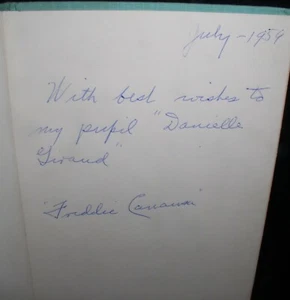 July - 1959
With best wishes to
my pupil "Danielle
Giraud"
"Freddie